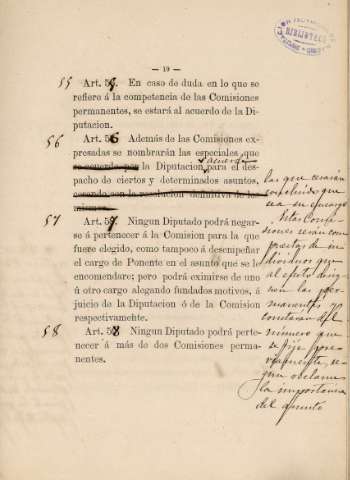 BIBLIOTECA
— 19 —
55 Art. 5 . En caso de duda en lo que se
refiere á la competencia de las Comisiones
permanentes, se estará al acuerdo de la Di-
putacion.
56 Art. 56 Además de las Comisiones ex-
presadas se nombrarán las especiales que
acuerde
se acuerde por la Diputacion, para el des-
pacho de ciertos y determinados asuntos,
cesando con la resolucion definitiva de los
mismos.
57 Art. 57. Ningun Diputado podrá negar-
se á pertenecer á la Comision para la que
fuere elegido, como tampoco á desempeñar
el cargo de Ponente en el asunto que se le
encomendare; pero podrá eximirse de uno
ú otro cargo alegando fundados motivos, á
juicio de la Diputacion ó de la Comision
respectivamente.
58 Art. 58 Ningun Diputado podrá perte-
necer á más de dos Comisiones perma-
nentes.
las que cesarán
concluido que
sea su encargo
Estas Comi-
siones serán com-
puestas de in-
dividuos que
al efecto
las per-
manentes, y
constarán del
número que
se fije previ-
amente, se-
gun reclame
la importancia
del asunto